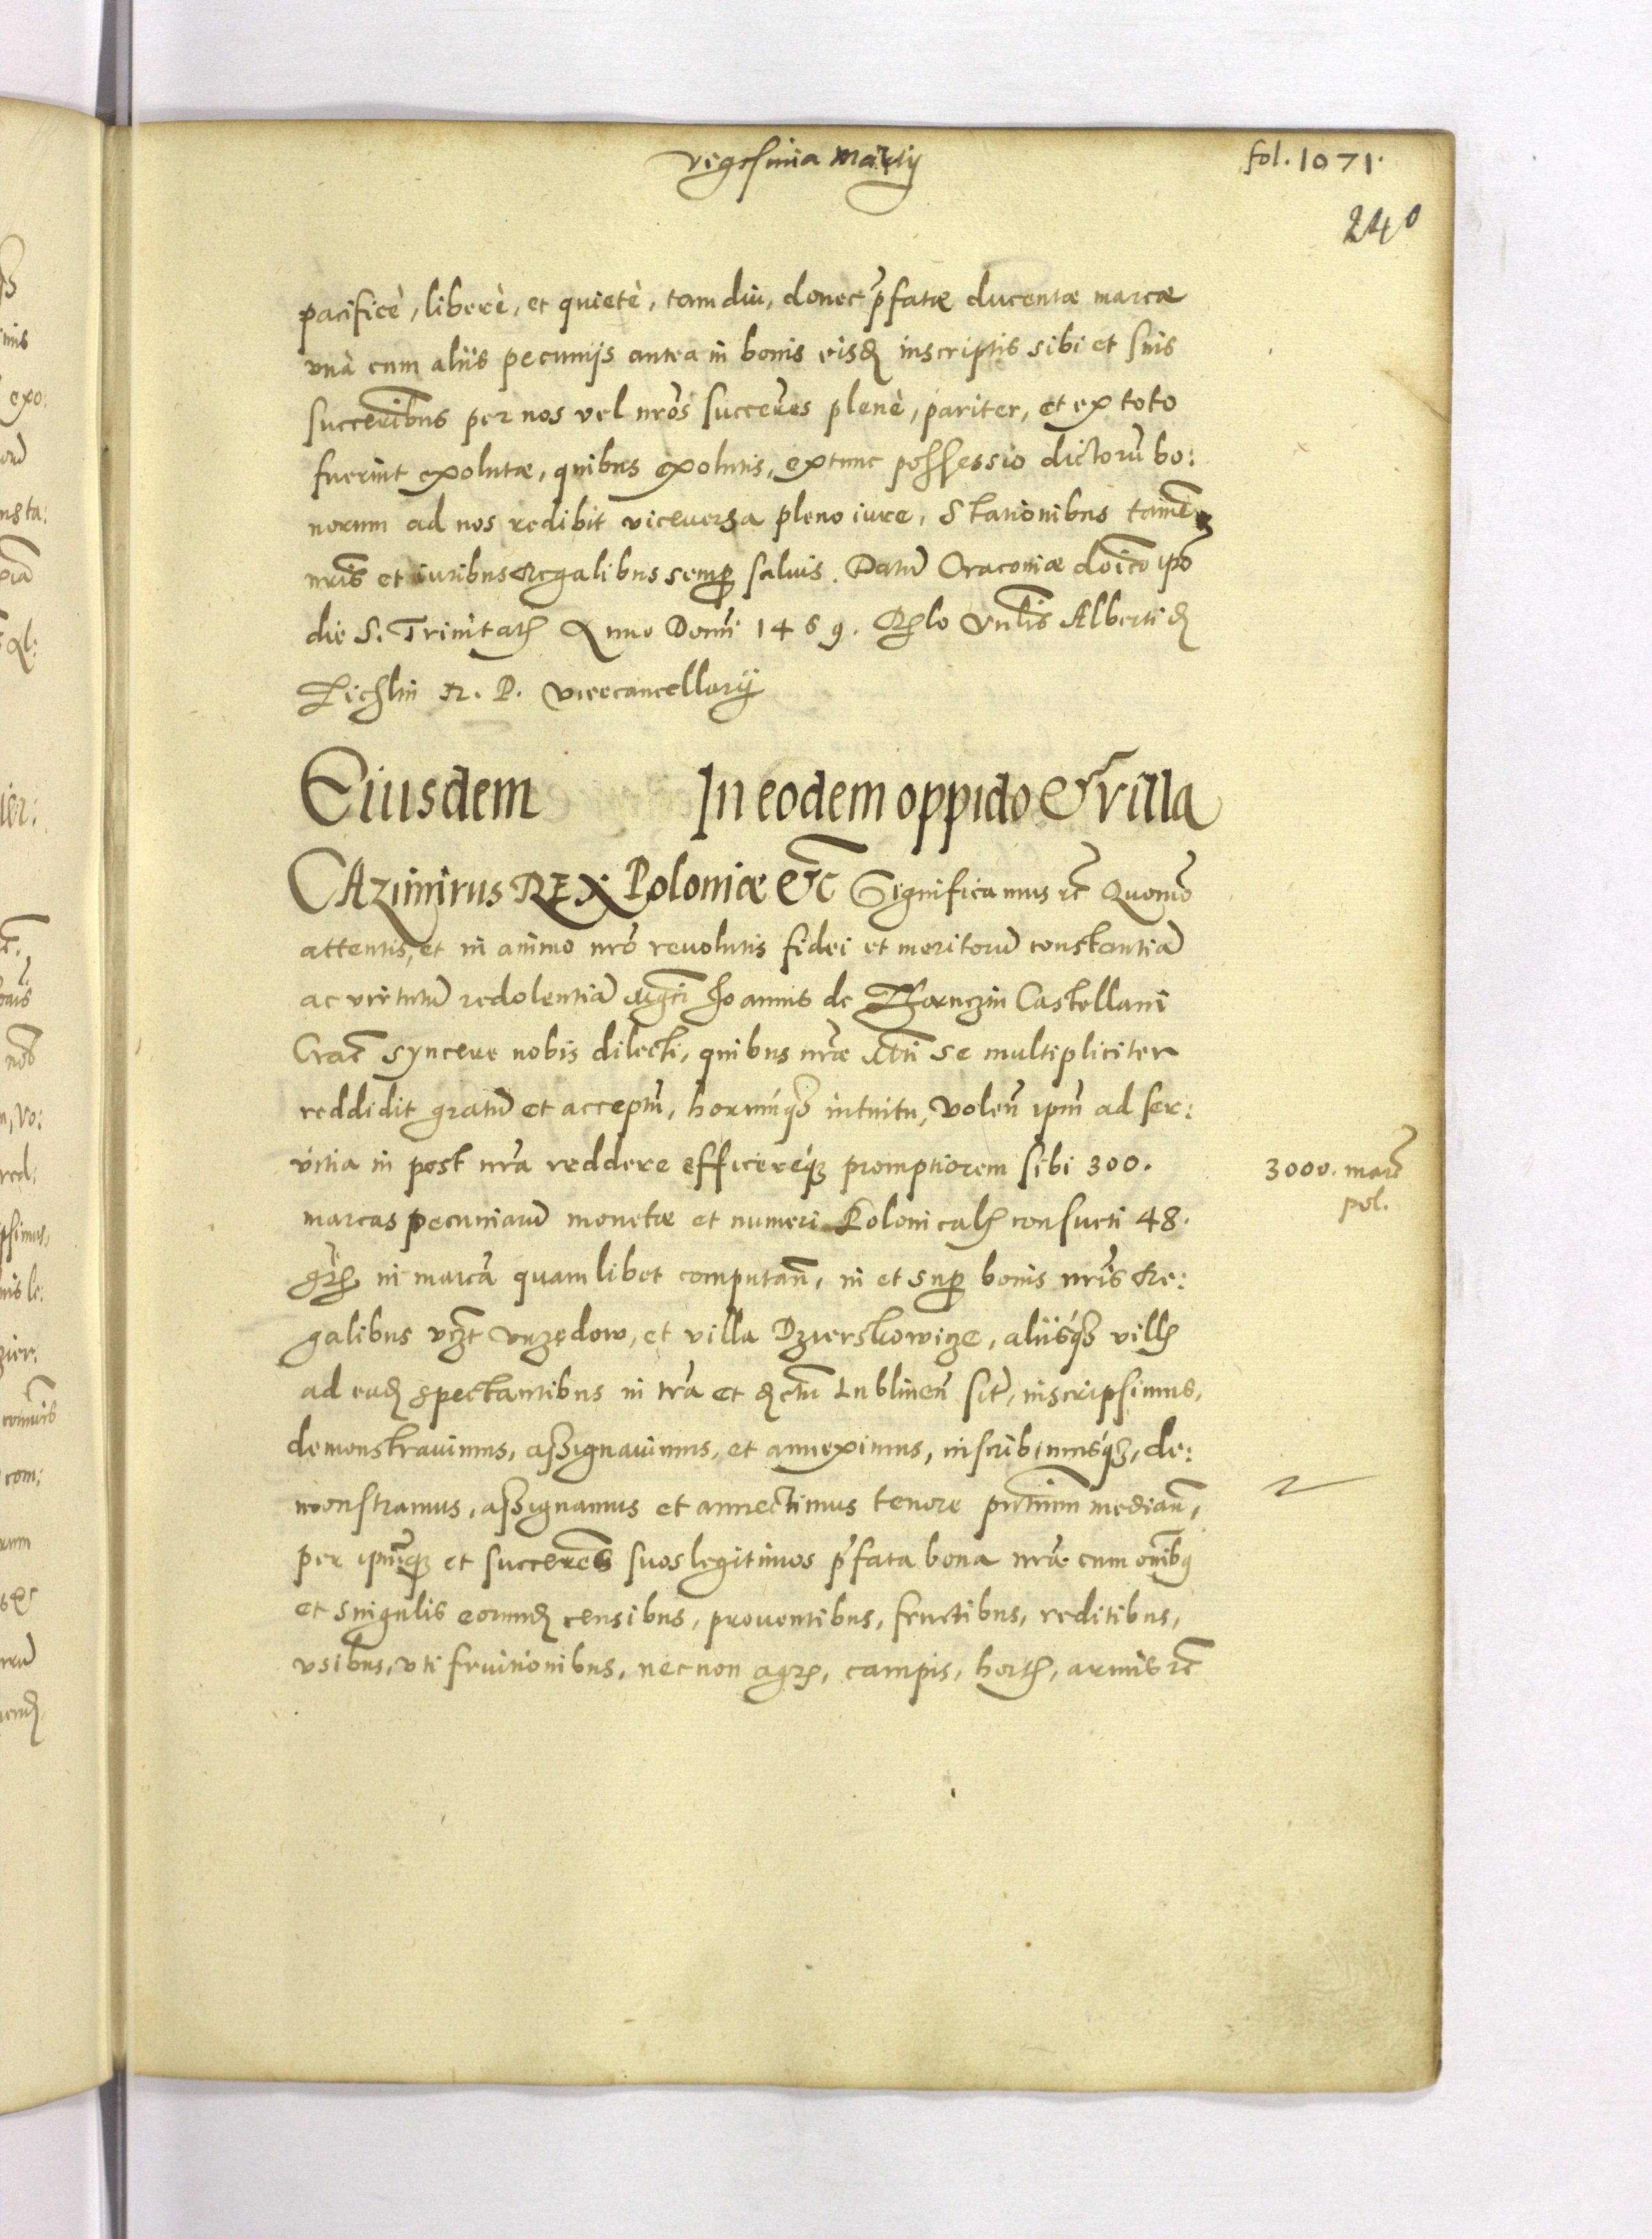 vigesima Martij
fol. 1071.
240
pacificè, liberè, et quietè, tam diu, donec p̄fatæ ducentæ marcæ
vnà cum aliis pecunijs antea in bonis eisd̨ inscriptis sibi et suis
succerib̃us per nos vel nrõs succeres̃ plenè, pariter, et ex toto
fuerint exolutæ, quibus exolutis, extunc possessio dictorũ bo:
norum ad nos redibit viceuersa pleno iure, Stationibus tamẽ
nrĩs et iuribus Regalibus semp̱ saluis. Datũ Cracoviæ doĩco ipõ
die S. Trinitatꝭ Anno Domĩ 1469. Rꝭlo Vnlĩs Alberti d̨
Zichlin R. P. vicecancellarij
Eiusdem In eodem oppido & villa
CAzimirus REX Poloniæ &c̃ Significamus rc̃ Quomõ
attentis, et in animo nrõ reuolutis fidei et meritorũ constantiã
ac virtutũ redolentiã Mgcĩ Joannis de Tharnczin Castellani
Crac̃ syncere nobis dilecti, quibus nrãe Mtĩ se multipliciter
reddidit gratũ et acceptũ, horumq́ꝫ intuitu, volen̄ ipm̃ ad ser:
vitia in post nrã reddere efficereq́ꝫ promptiorem sibi 300.
marcas pecuniarũ monetæ et numeri Polonicalꝭ consueti 48.
grꝭ in marcã quamlibet computan̄, in et sup̱ bonis nrĩs Re:
galibus vcꝫt Vrzędow, et villa Dzierskowicze, aliisq́ꝫ villꝭ
ad ead̨ spectantibus in trã et d̨ctũ Lublinen̄ sit̃, inscripsimus,
demonstrauimus, assignauimus, et anneximus, inscribimusq́ꝫ, de:
monstramus, assignamus et annectimus tenore pntĩum median̄,
per ipmq́ꝫ et succeres̃ suos legitimos p̄fata bona nrã cum om̃ibꝰ
et singulis eorund̨ censibus, prouentibus, fructibus, reditibus,
vsibus, vti fruitionibus, necnon agrꝭ, campis, hortꝭ, aruis rc̃
3000. marc̃
pol.